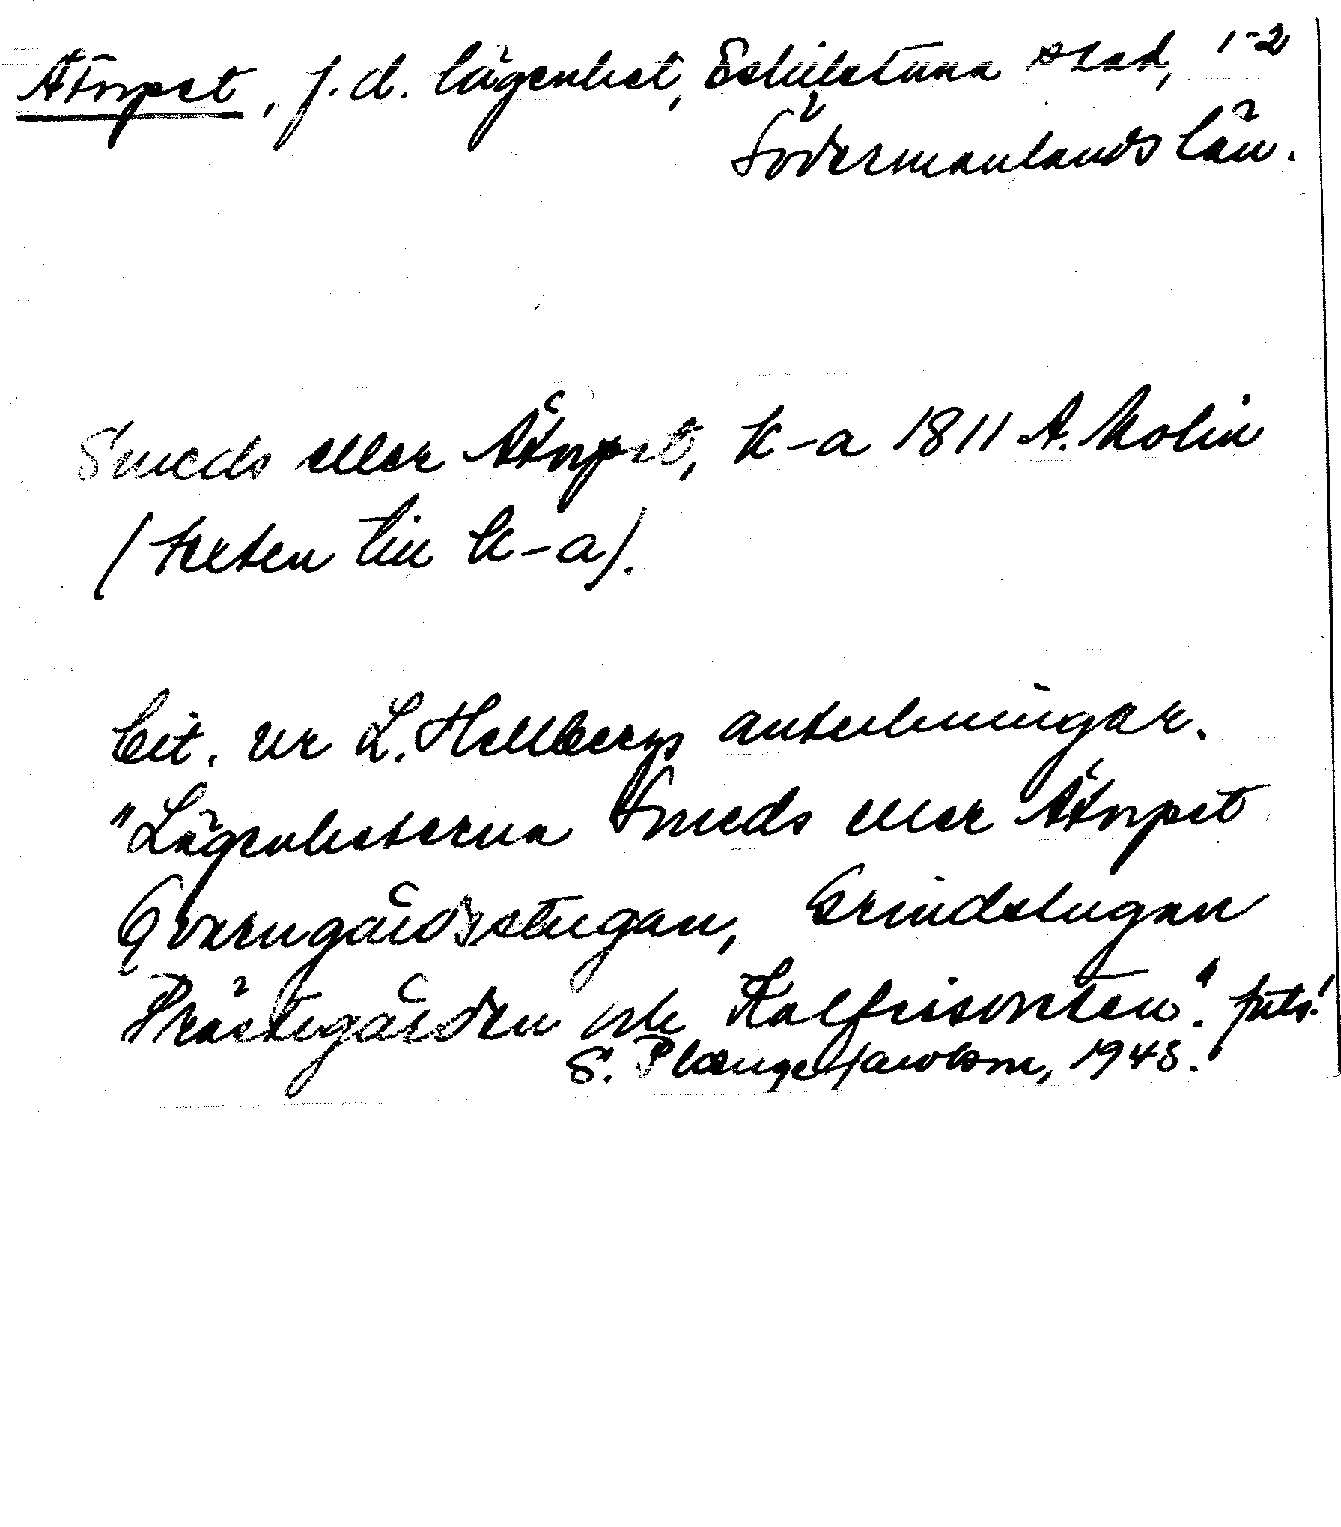 Åtorpet, f.d. lägenhet, Eskilstuna stad, 1-2
Södermanlands län.
Smeds eller Åtorpet, k-a 1811 A. Molin
(texten till k-a).
Cit. ur L. Hellbergs anteckningar.
"Lägenheterna Smeds eller Åtorpet
Qvarngårdsstugan, Grindstugan
Prästegården och Kalfrisonten".
S. Plænge Jacobson, 1948.